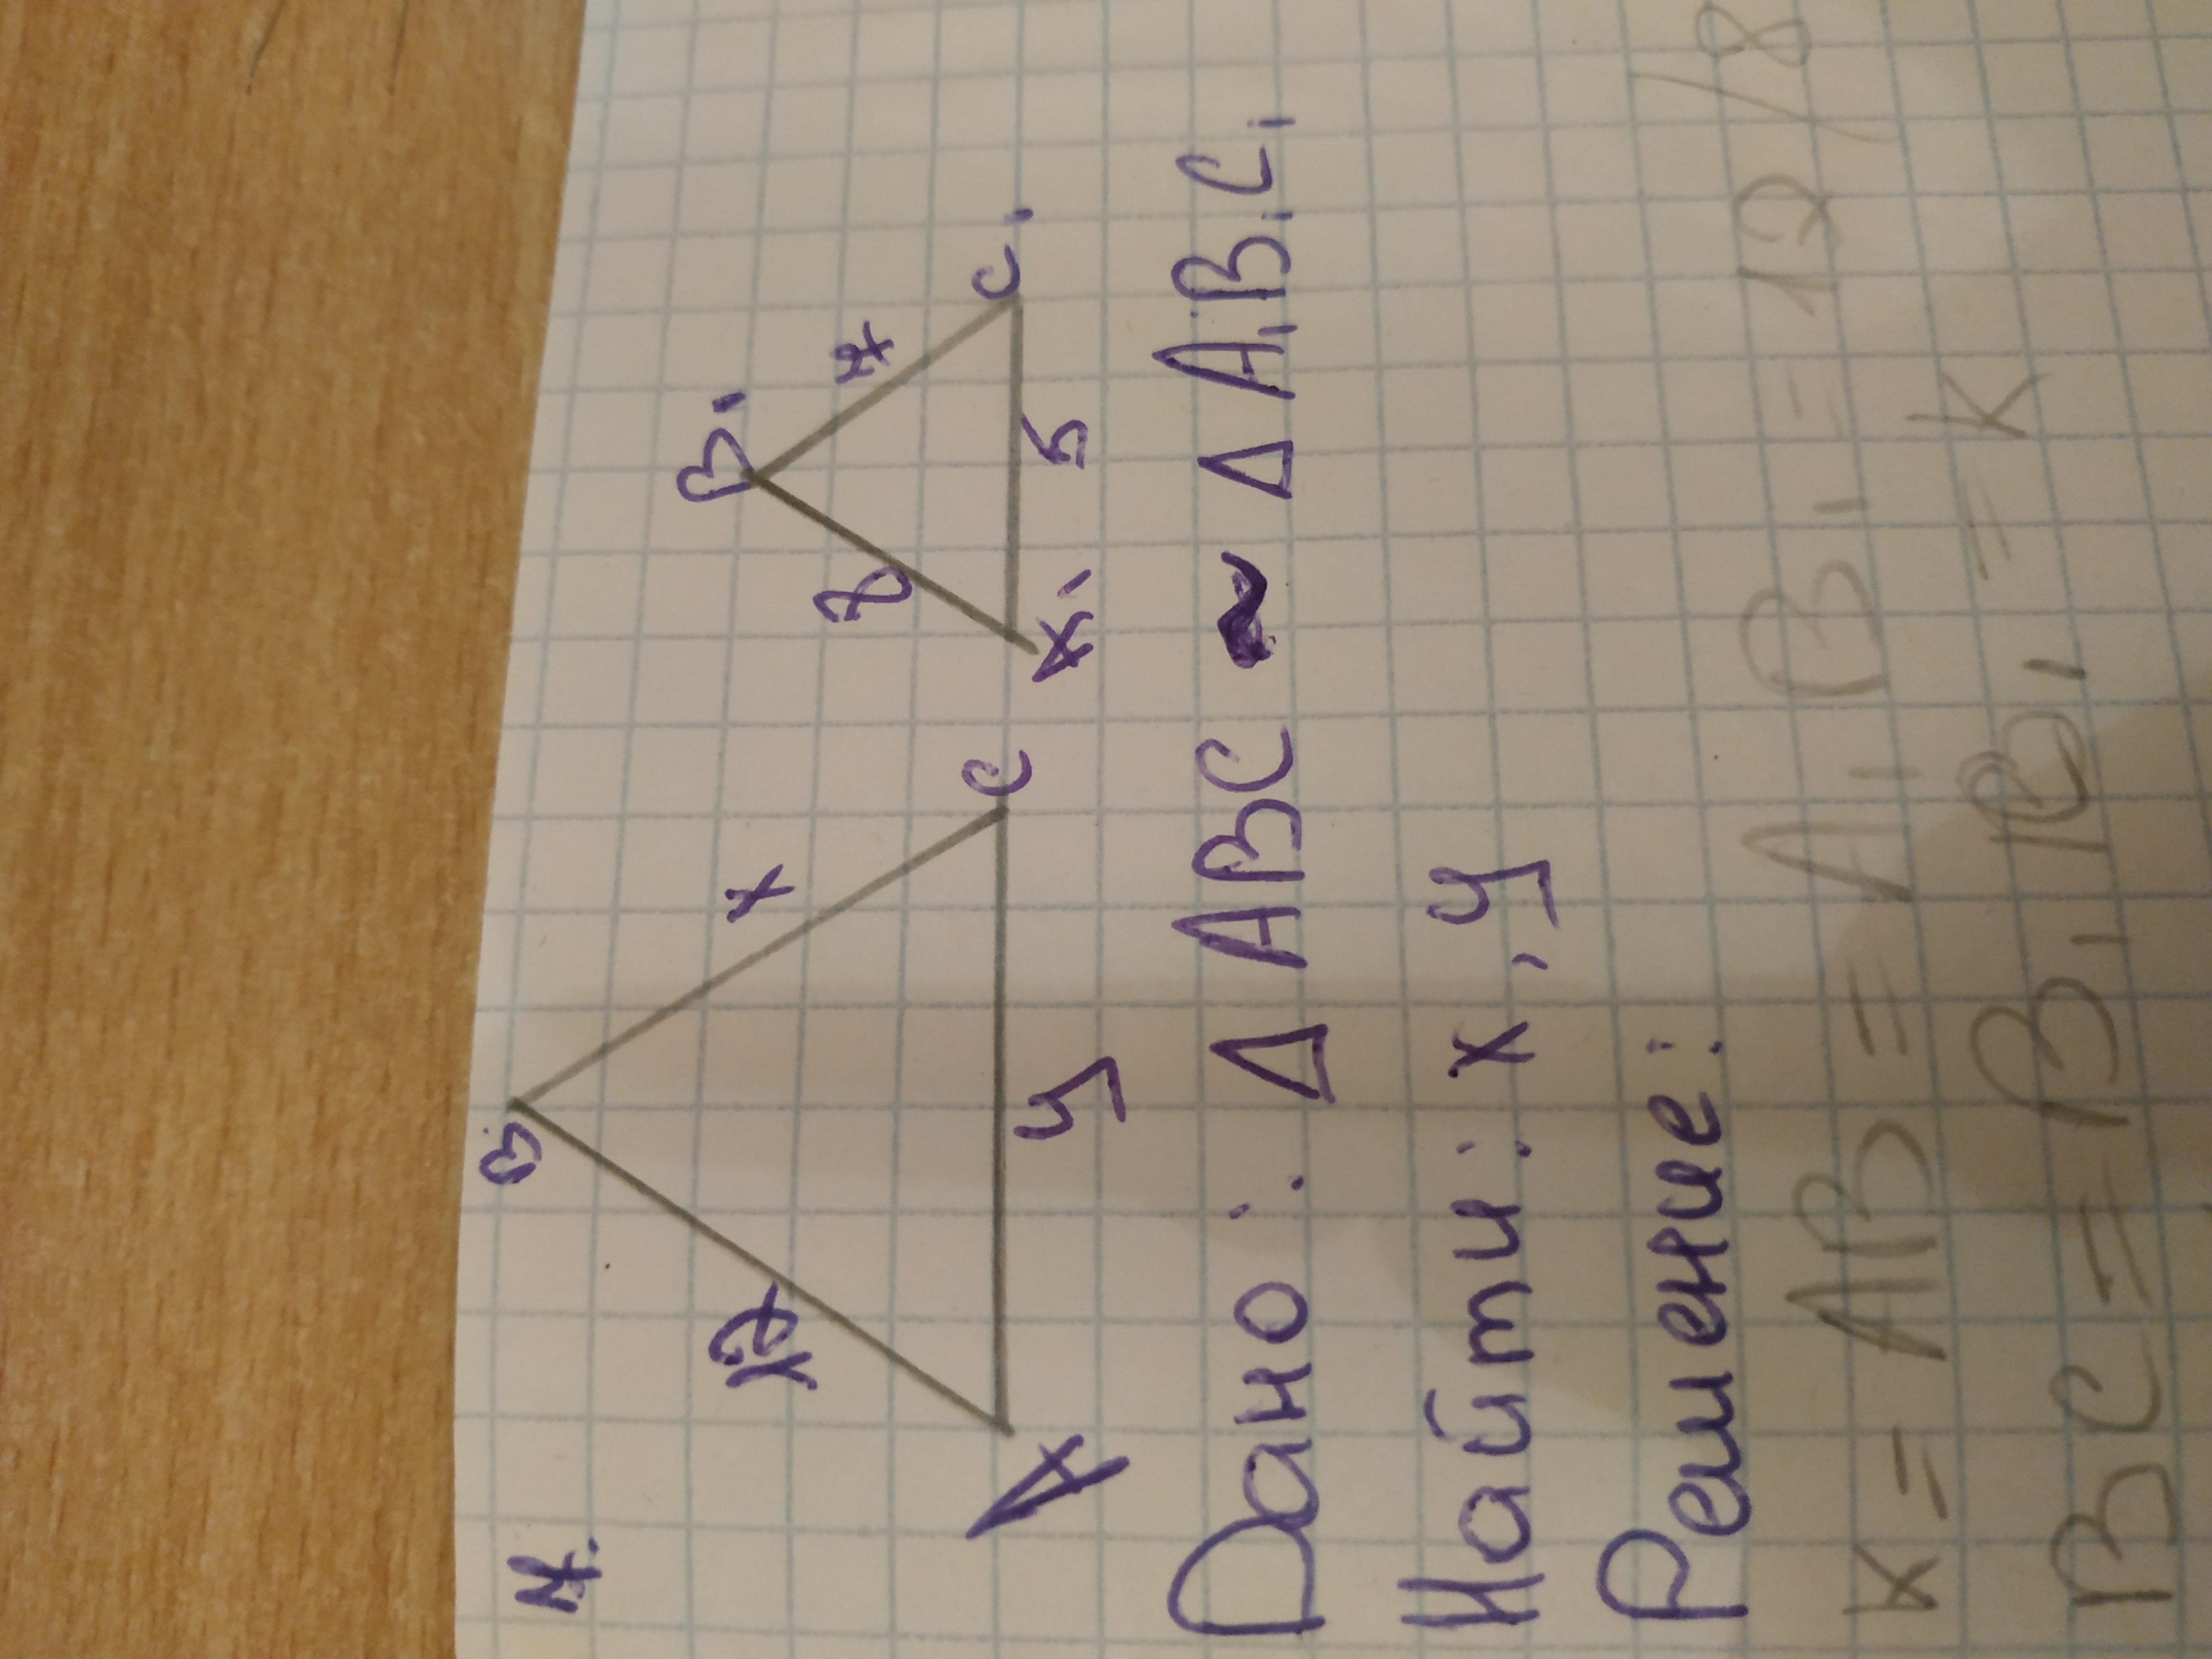 7.
B
12
x
A
y
C
B1
8
7
A1
5
C1
Дано: Δ ABC ~ Δ A1B1C1
Найти: x, y
Решение:
K = AB = A1 B1 = 12 / 8
BC = B1 = K